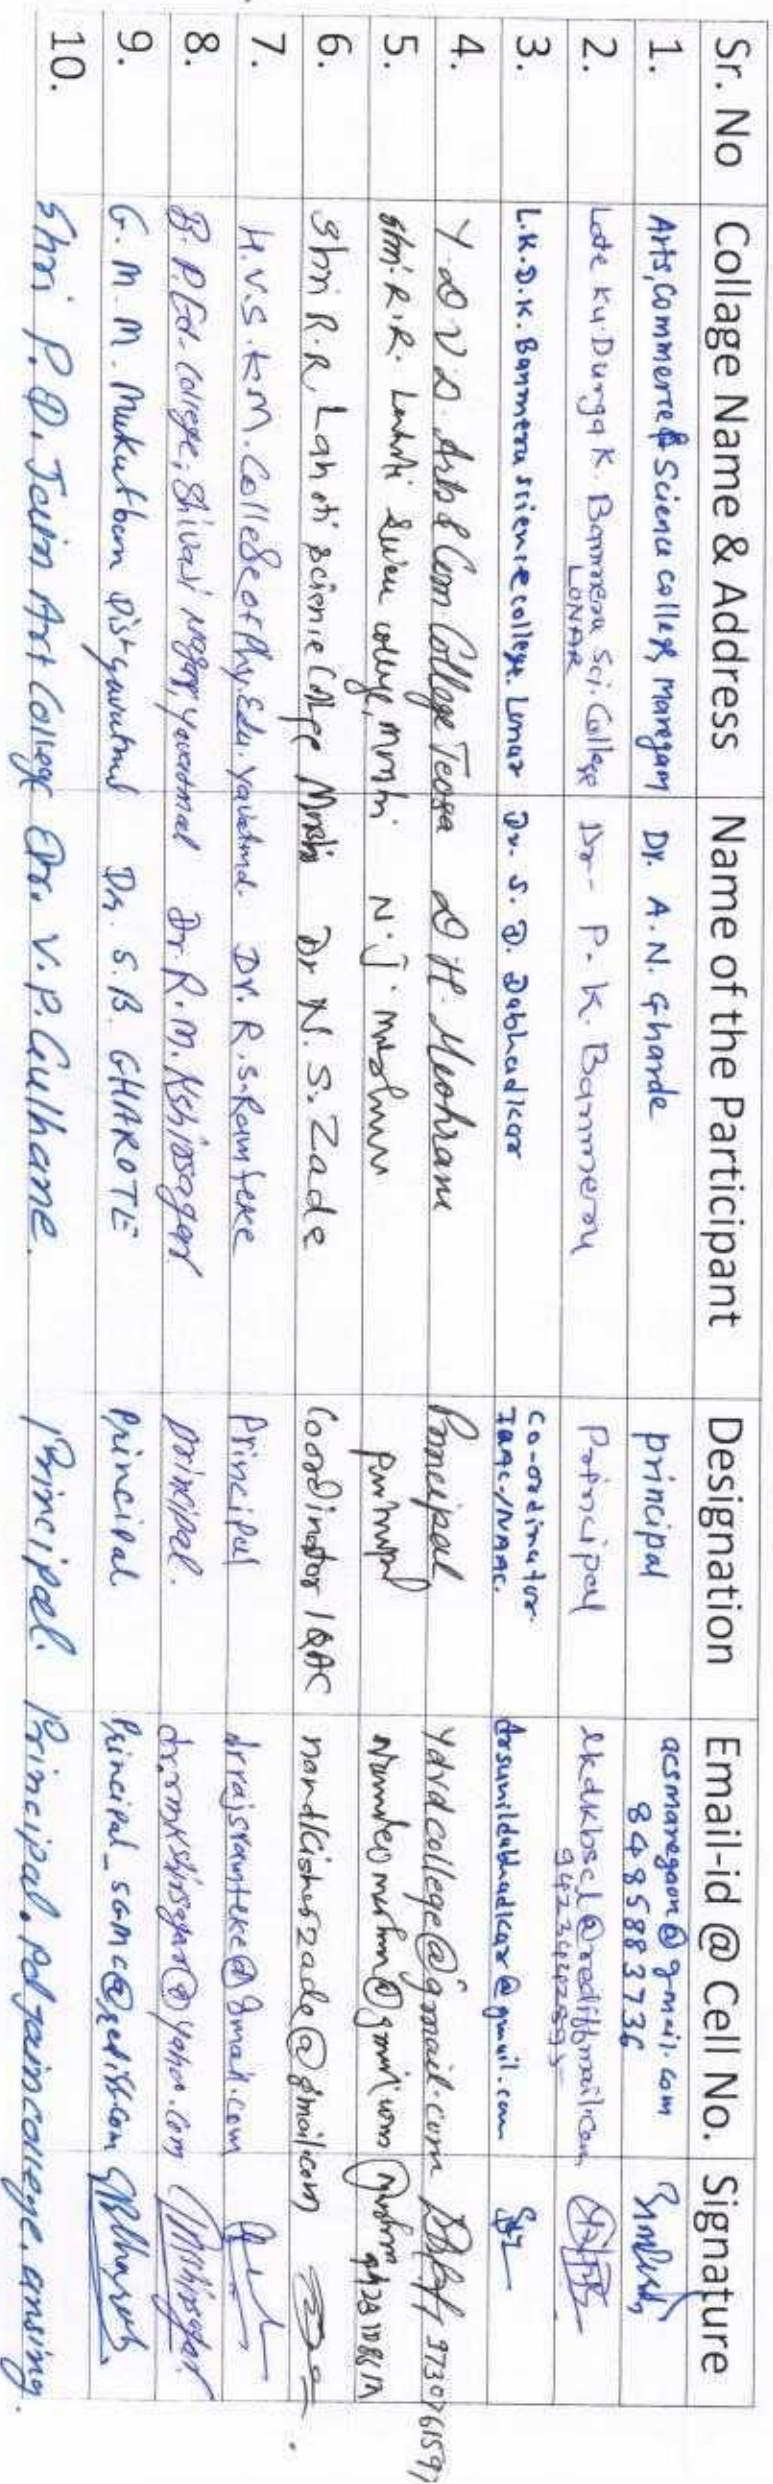 Sr. No Collage Name & Address Name of the Participant Designation Email-id @ Cell No. Signature
1. Arts, Commerce & Science college, Maregaon Dr. A. N. Gharde principal acsmaregaon@gmail.com
8485883736
2. Late Ku. Durga K. Banmeru Sci. College Dr. P. K. Banmeru Principal lkdkbscl@rediffmail.com
LONAR
3. L.K.D.K. Banmeru science college. Lonar Dr. S. D. Dabhadkar Co-ordinator drsunildabhadkar@gmail.com
IQAC/NAAC.
4. Y.D.V.D. Arts & Com College Teosa D H. Meshram Principal ydvdcollege@gmail.com 9730761597
5. Shri. R. R. Lahoti Science college, Morshi N. J. Principal
6. Shri R. R. Lahoti Science College Morshi Dr N. S. Zade Coordinator IQAC nandkishorzade@gmail.com
7. H.V.S.K.M. College of Phy. Edu. Yavatmal. Dr. R. S. Ramteke Principal drrajsramteke@gmail.com
8. B. P. Ed. College, Shivaji Nagar, Yavatmal Dr. R. M. Kshirsagar principal. drrmkshirsagar@yahoo.com
9. G. M. M. Mukutban Dist Yavatmal Dr. S. B. GHAROTE Principal Principal_sgmc@rediff.com
10. Shri P. D. Jain Art College Dr. V. P. Gulhane. Principal. Principal.pdjaincollege.ansing.